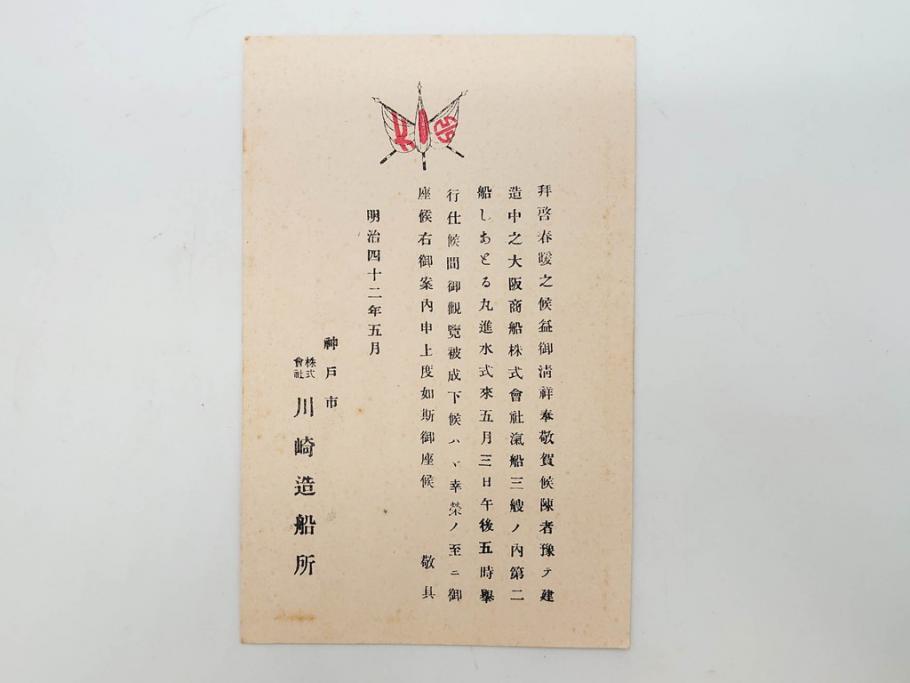 拜啓春暖之候益御淸祥奉敬賀候陳者豫テ建
造中之大阪商船株式會社滊船三艘ノ內第二
船しあとる丸進水式來五月三日午後五時擧
行仕候間御觀覽被成下候ハヾ幸榮ノ至ニ御
座候右御案內申上度如斯御座候 敬具
明治四十二年五月
神戶市
株式會社 川崎造船所